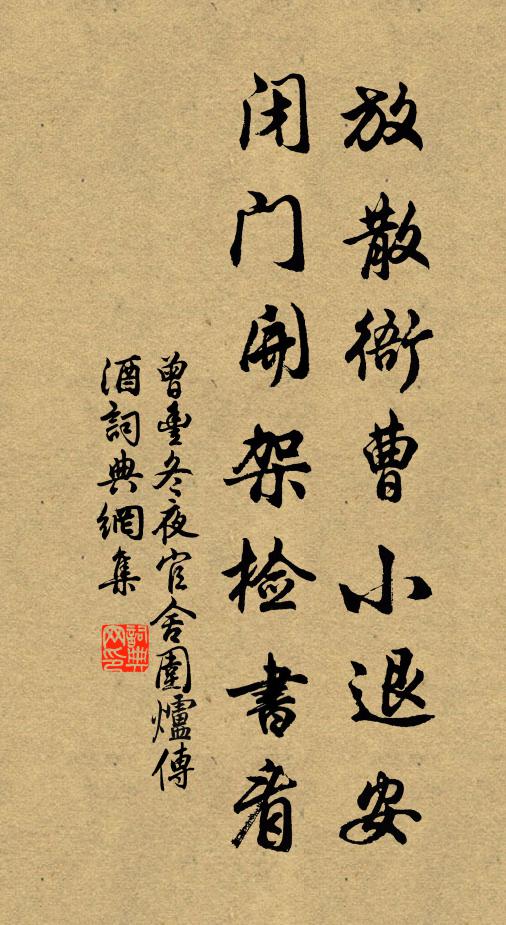 放散衙曹小退安
闭门開架检書看
曾豐冬夜官舍圍爐傳
酒詞典網集
詞典网印